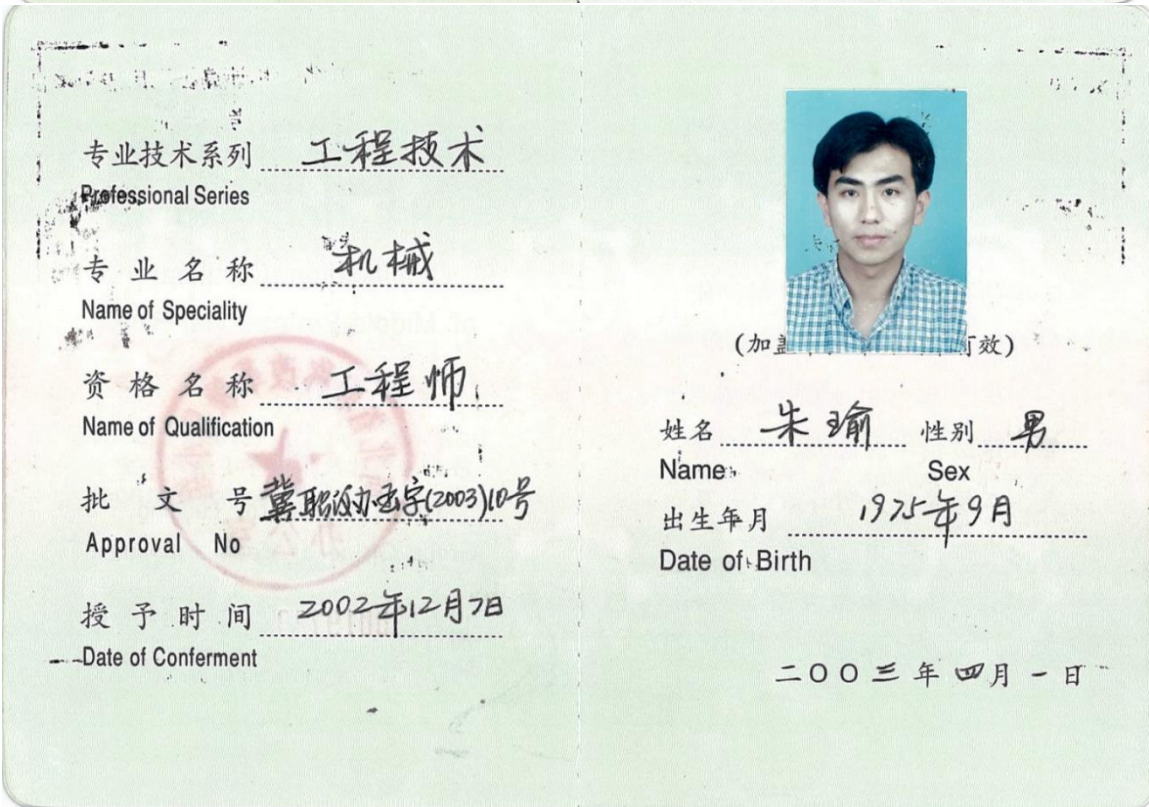 专业技术系列 工程技术
Professional Series
专业名称 机械
Name of Speciality
资格名称 工程师
Name of Qualification
批文号 冀职改办函字(2003)10号
Approval No
授予时间 2002年12月7日
Date of Conferment
(加盖 有效)
姓名 朱瑜 性别 男
Name Sex
出生年月 1975年9月
Date of Birth
二〇〇三年四月一日